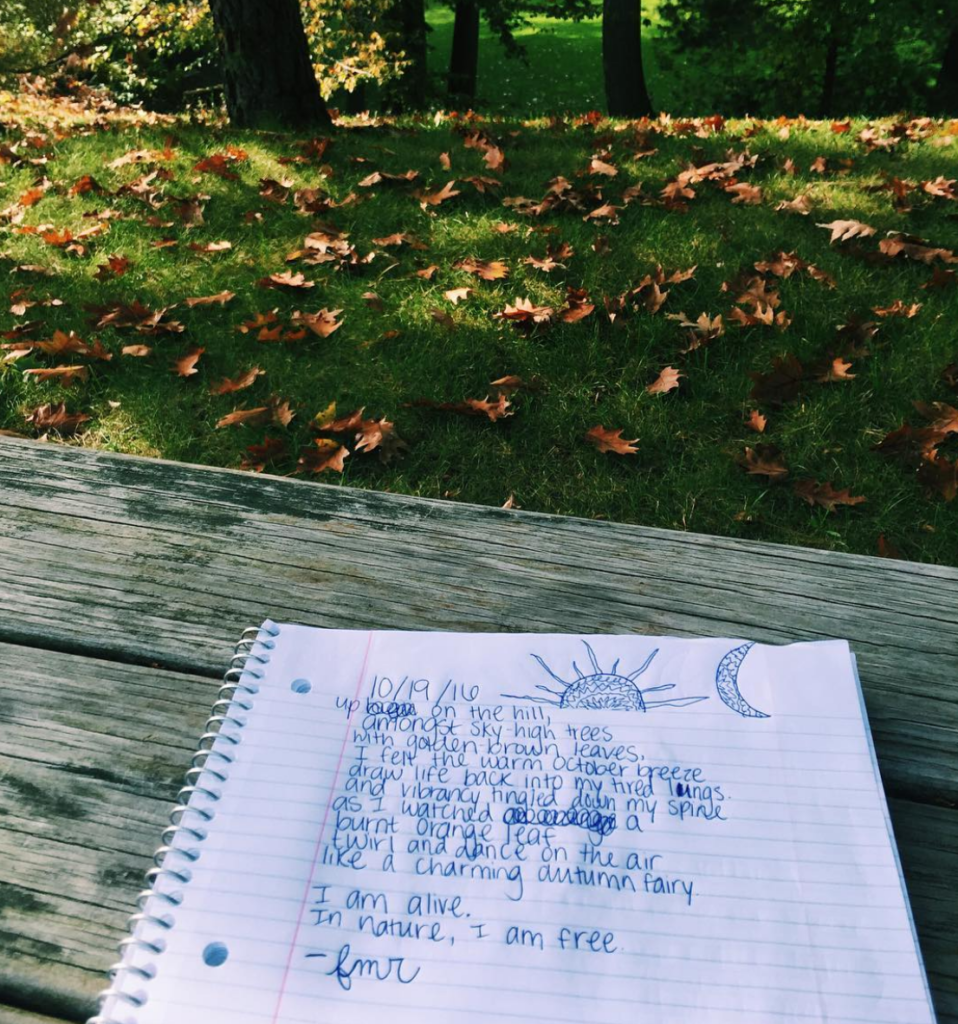 10/19/16
up on the hill,
amongst sky-high trees
with golden-brown leaves,
I felt the warm october breeze
draw life back into my tired lungs.
and vibrancy tingled down my spine
as I watched a
burnt orange leaf
twirl and dance on the air
like a charming autumn fairy.
I am alive.
In nature, I am free.
-fmr